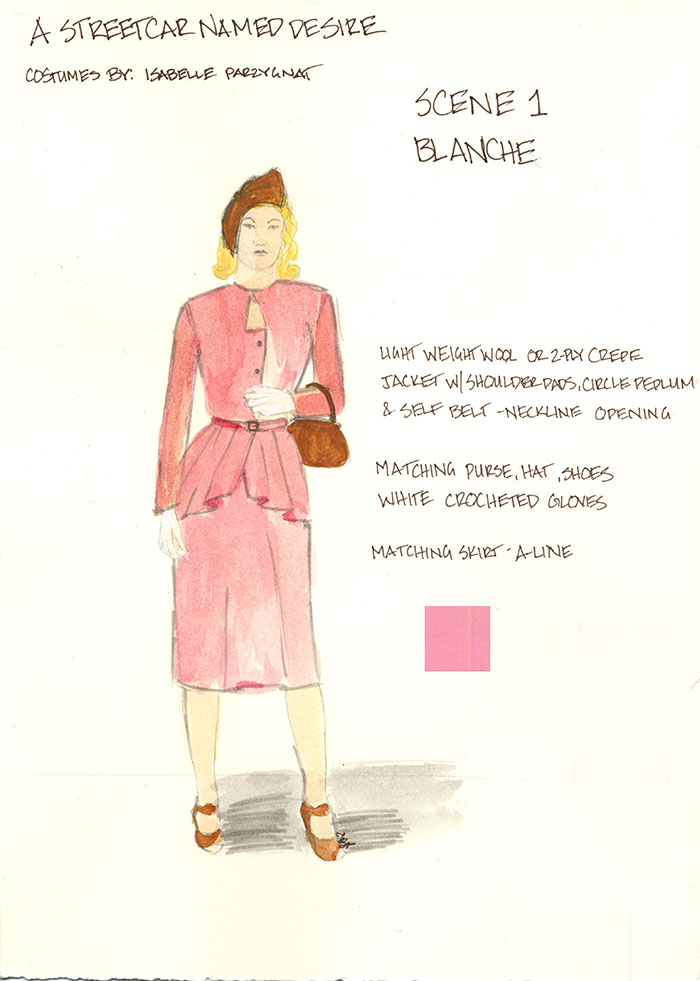 A STREETCAR NAMED DESIRE
COSTUMES BY: ISABELLE PARZYGNAT
SCENE 1
BLANCHE
LIGHT WEIGHT WOOL OR 2-PLY CREPE
JACKET W/ SHOULDER PADS, CIRCLE PEPLUM
& SELF BELT - NECKLINE OPENING
MATCHING PURSE, HAT, SHOES
WHITE CROCHETED GLOVES
MATCHING SKIRT - A-LINE